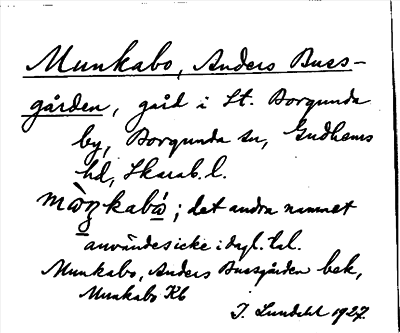 Munkabo, Anders Buss-
gården, gård i St. Borgunda
by, Borgunda sn, Gudhems
hd, Skarab. l.
mòŋkabó; det andra namnet
användes icke i dagl. tal.
Munkabo, Anders Bussgården bek,
Munkabo Kb
I. Lundahl 1927.